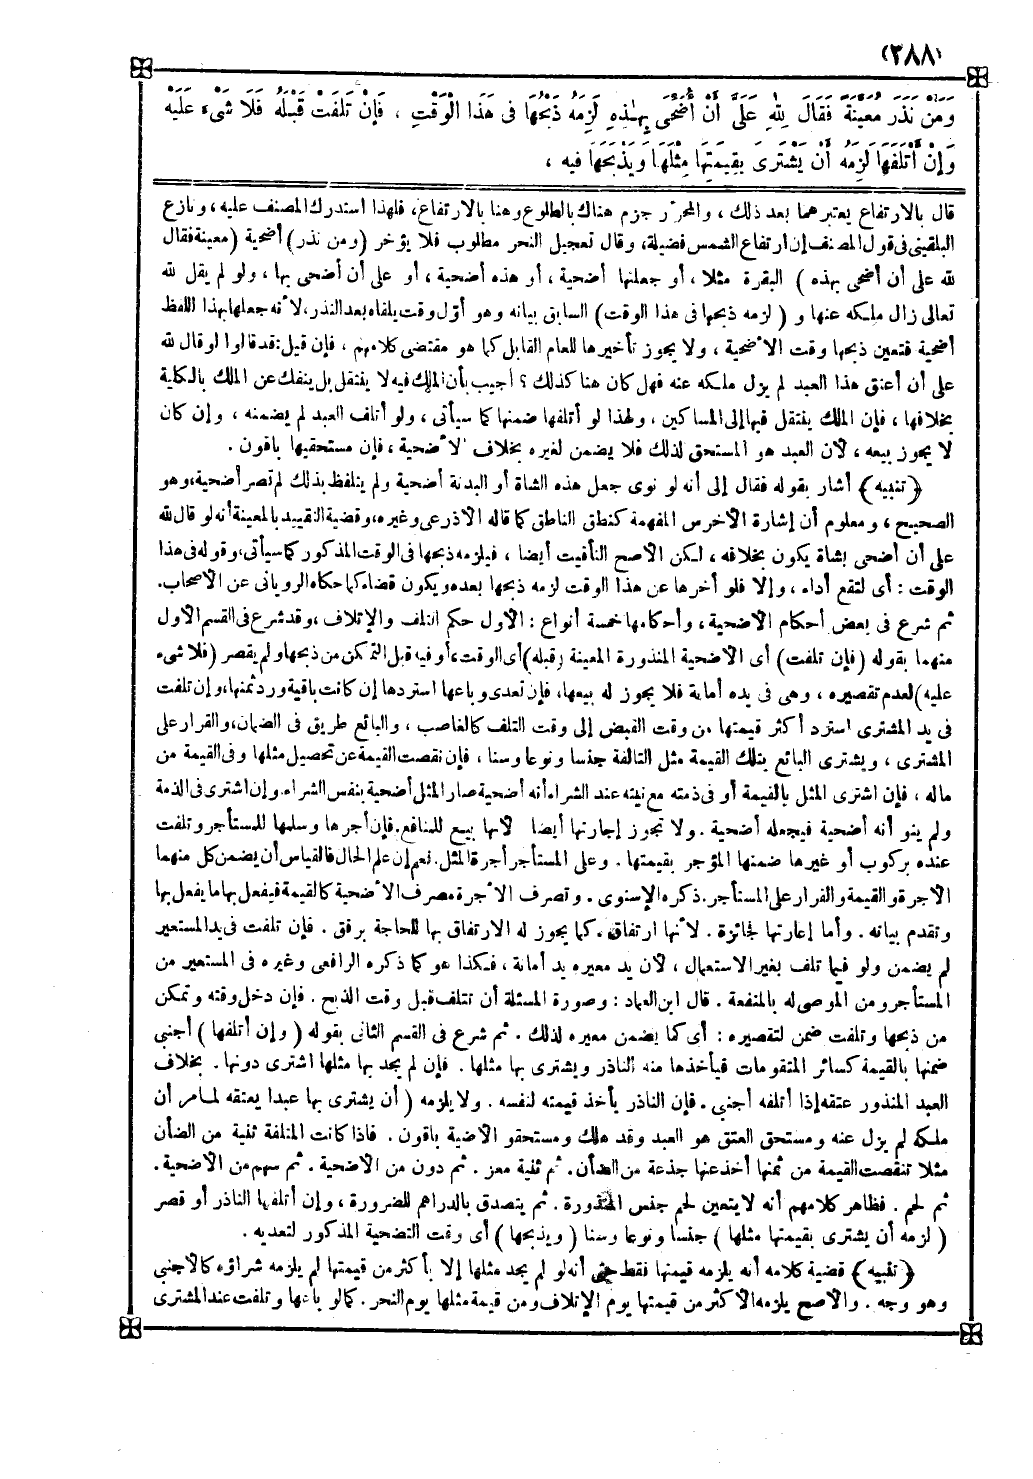 (٢٨٨)
وَمَنْ نَذَرَ مُعَيَّنَةً فَقَالَ لِلّٰهِ عَلَىَّ أَنْ أُضَحِّىَ بِهٰذِهِ لَزِمَهُ ذَبْحُهَا فِى هَذَا الْوَقْتِ ، فَإِنْ تَلِفَتْ قَبْلَهُ فَلَا شَىْءَ عَلَيْهِ
وَإِنْ أَتْلَفَهَا لَزِمَهُ أَنْ يَشْتَرِىَ بِقِيمَتِهَا مِثْلَهَا وَيَذْبَحَهَا فيه ،
قال بالارتفاع يعتبرهما بعد ذلك ، والمحرّر جزم هناك بالطلوع وهنا بالارتفاع، فلهذا استدرك المصنف عليه ، ونازع
البلقينى فى قول المصنف إن ارتفاع الشمس فضيلة، وقال تعجيل النحر مطلوب فلا يؤخر (ومن نذر) أضحية (معينة فقال
لله على أن أضحى بهذه ) البقرة مثلا ، أو جعلتها أضحية ، أو هذه أضحية ، أو على أن أضحى بها ، ولو لم يقل لله
تعالى زال ملكه عنها و ( لزمه ذبحها فى هذا الوقت) السابق بيانه وهو أوّل وقت يلقاه بعد النذر، لأنه جعلها بهذا اللفظ
أضحية فتعين ذبحها وقت الأضحية ، ولا يجوز تأخيرها للعام القابل كما هو مقتضى كلامهم ، فإن قيل: قد قالوا لو قال لله
على أن أعتق هذا العبد لم يزل ملكه عنه فهل كان هنا كذلك ؟ أجيب بأن الملك فيه لا ينتقل بل ينفك عن الملك بالكلية
بخلافها ، فإن الملك ينتقل فيها إلى المساكين ، ولهذا لو أتلفها ضمنها كما سيأتى ، ولو أتلف العبد لم يضمنه ، وإن كان
لا يجوز بيعه ، لأن العبد هو المستحق لذلك فلا يضمن لغيره بخلاف الأضحية ، فإن مستحقيها باقون .
﴿تنبيه﴾ أشار بقوله فقال إلى أنه لو نوى جعل هذه الشاة أو البدنة أضحية ولم يتلفظ بذلك لم تصر أضحية، وهو
الصحيح ، ومعلوم أن إشارة الأخرس المفهمة كنطق الناطق كما قاله الأذرعى وغيره، وقضية التقييد بالمعينة أنه لو قال لله
على أن أضحى بشاة يكون بخلافه ، لكن الأصح التأقيت أيضا ، فيلزمه ذبحها فى الوقت المذكور كما سيأتى، وقوله فى هذا
الوقت : أى لتقع أداء ، وإلا فلو أخرها عن هذا الوقت لزمه ذبحها بعده ويكون قضاء كما حكاه الرويانى عن الأصحاب.
ثم شرع فى بعض أحكام الأضحية ، وأحكامها خمسة أنواع : الأول حكم التلف والإتلاف ، وقد شرع فى القسم الأول
منهما بقوله (فإن تلفت) أى الأضحية المنذورة المعينة (قبله) أى الوقت، أو فيه قبل التمكن من ذبحها ولم يقصر (فلا شىء
عليه) لعدم تقصيره ، وهى فى يده أمانة فلا يجوز له بيعها، فإن تعدى وباعها استردها إن كانت باقية ورد ثمنها، وإن تلفت
فى يد المشترى استرد أكثر قيمتها من وقت القبض إلى وقت التلف كالغاصب ، والبائع طريق فى الضمان، والقرار على
المشترى ، ويشترى البائع بتلك القيمة مثل التالفة جنسا ونوعا وسنا ، فإن نقصت القيمة عن تحصيل مثلها وفى القيمة من
ماله ، فإن اشترى المثل بالقيمة أو فى ذمته مع نيته عند الشراء أنه أضحية صار المثل أضحية بنفس الشراء. وإن اشترى فى الذمة
ولم ينو أنه أضحية فيجعله أضحية . ولا تجوز إجارتها أيضا لأنها بيع للمنافع. فإن أجرها وسلمها للمستأجر وتلفت
عنده بركوب أو غيرها ضمنها المؤجر بقيمتها . وعلى المستأجر أجرة المثل. نعم إن علم الحال فالقياس أن يضمن كل منهما
الأجرة والقيمة والقرار على المستأجر. ذكره الإسنوى . وتصرف الأجرة مصرف الأضحية كالقيمة فيفعل بها ما يفعل بها
وتقدم بيانه . وأما إعارتها فجائزة . لأنها ارتفاق . كما يجوز له الارتفاق بها للحاجة برفق . فإن تلفت فى يد المستعير
لم يضمن ولو فيما تلف بغير الاستعمال ، لأن يد معيره يد أمانة ، فكذا هو كما ذكره الرافعى وغيره فى المستعير من
المستأجر ومن الموصى له بالمنفعة . قال ابن العماد : وصورة المسئلة أن تتلف قبل وقت الذبح . فإن دخل وقته وتمكن
من ذبحها وتلفت ضمن لتقصيره : أى كما يضمن معيره لذلك . ثم شرع فى القسم الثانى بقوله ( وإن أتلفها ) أجنبى
ضمنها بالقيمة كسائر المتقومات فيأخذها منه الناذر ويشترى بها مثلها . فإن لم يجد بها مثلها اشترى دونها . بخلاف
العبد المنذور عتقه إذا أتلفه أجنبى . فإن الناذر يأخذ قيمته لنفسه . ولا يلزمه ( أن يشترى بها عبدا يعتقه لما مر أن
ملكه لم يزل عنه ومستحق العتق هو العبد وقد هلك ومستحقو الأضحية باقون . فإذا كانت المتلفة ثنية من الضأن
مثلا تنقصت القيمة من ثمنها أخذ عنها جذعة من الضأن. ثم ثنية معز . ثم دون من الأضحية . ثم سهم من الأضحية .
ثم لحم . فظاهر كلامهم أنه لا يتعين لحم جنس المنذورة . ثم يتصدق بالدراهم للضرورة ، وإن أتلفها الناذر أو قصر
( لزمه أن يشترى بقيمتها مثلها ) جنسا ونوعا وسنا ( ويذبحها ) أى وقت التضحية المذكور لتعديه .
﴿تنبيه﴾ قضية كلامه أنه يلزمه قيمتها فقط حتى أنه لو لم يجد مثلها إلا بأكثر من قيمتها لم يلزمه شراؤه كالأجنبى
وهو وجه . والأصح يلزمه الأكثر من قيمتها يوم الإتلاف ومن قيمة مثلها يوم النحر. كما لو باعها وتلفت عند المشترى